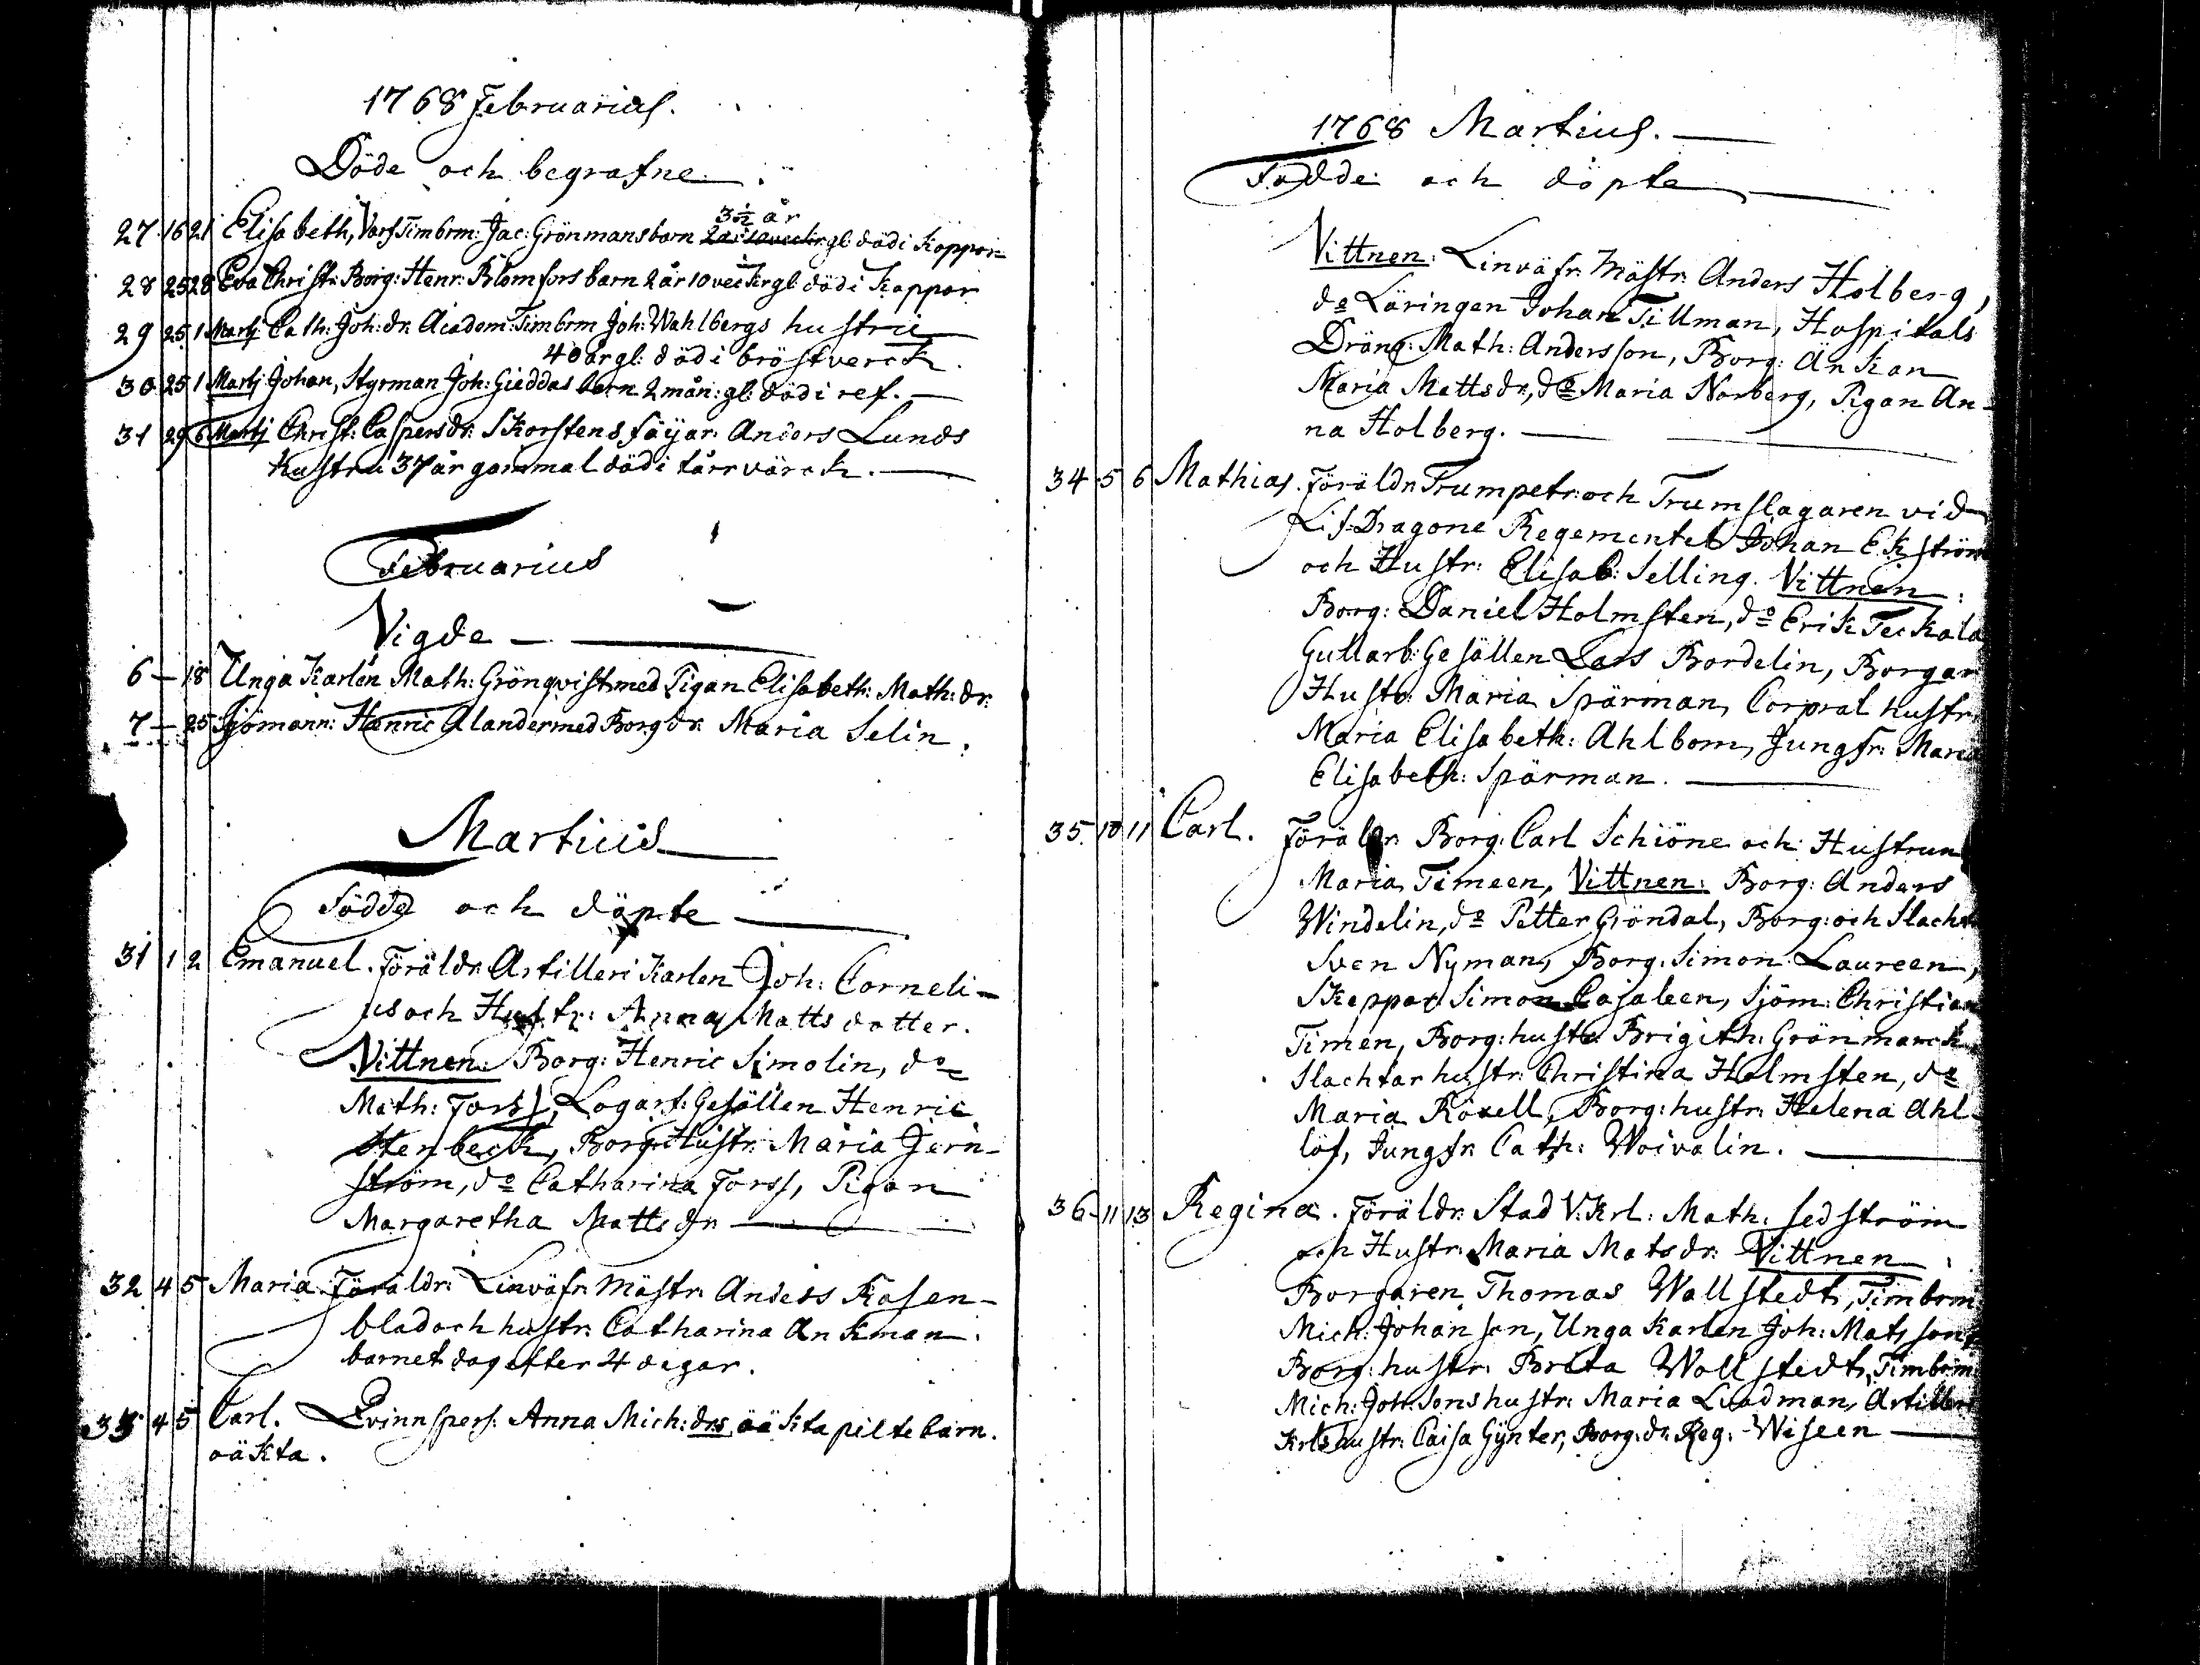 1768 Februarius.
Döde och begrafne
27 16 21 Elisabeth, Varfs Timbrm: Jac: Grönmans barn 3½ år gl: död i Koppor
28 25 28 Eva Christ: Borg: Henr: Blomfors barn 2 år 10 veckr gl: död i Koppor
29 25 1 Martj Cath: Joh: dr. Academ: Timbrm Joh: Wahlbergs hustru
40 år gl: död i bröstverck.
30 25 1 Martj Johan, Styrman Joh: Gieddas barn 2 mån: gl: död i ref.
31 29 6 Martj Christ: Caspersdr: Skorstens fäijar: Anders Lunds
hustru 37 år gammal död i tårrvärck.
Februarius
Vigde
6 — 18 Unga Karlen Math: Grönqvist med Pigan Elisabeth: Math: dr:
7 — 25 Sjömann: Henric Alander med Borg dr. Maria Selin.
Martius
Födde och döpte
31 1 2 Emanuel. Föräldr: Artilleri Karlen Joh: Corneli-
us och Hustr: Anna Matts dotter.
Vittnen: Borg: Henric Simolin, do
Math: Forss, Logarf: Gesällen Henric
Stenbeck, Borg: Hustr: Maria Jern-
ström, do Catharina Forss, Pigan
Margaretha Matts dr
32 4 5 Maria. Föräldr: Linväfr: Mästr: Anders Rosen-
blad och hustr: Catharina Ankman.
barnet dog efter 4 dagar.
33 4 5 Carl. Qvinnspers: Anna Mich: drs oäkta piltebarn.
oäkta.
1768 Martius.
Födde och döpte
Vittnen: Linväfr: Mästr: Anders Holberg,
do Läringen Johan Tillman, Hospitals
Dräng: Math: Andersson, Borg: Änkan
Maria Matts dr, do Maria Norberg, Pigan An-
na Holberg.
34 5 6 Mathias. Föräldr: Trumpetr: och Trumslagaren vid
Lif-Dragone Regementet Johan Ekström
och Hustr: Elisab: Selling. Vittnen:
Borg: Daniel Holmsten, do Erik
Gullarb: Gesällen Lars Bordelin, Borgar
Hustr: Maria Spärman, Corpral hustr:
Maria Elisabeth: Ahlbom, Jungfr: Maria
Elisabeth: Spärman.
35 10 11 Carl. Föräldr: Borg: Carl Schiöne och Hustrun
Maria Timeen, Vittnen: Borg: Anders
Windelin, do Petter Gröndal, Borg: och Slacht
Sven Nyman, Borg: Simon Laureen,
Skeppar Simon Cajaleen, Sjöm: Christian
Timen, Borg: hustr: Brigith: Grönmarck
Slachtar hustr: Christina Holmsten, do
Maria Roxell, Borg: hustr: Helena Ahl-
löf, Jungfr: Cath: Woivalin.
36 11 13 Regina. Föräldr: Stad V. Krl: Math: Sedström
och Hustr: Maria Mats dr: Vittnen:
Borgaren Thomas Wallstedt, Timbrm:
Mich: Johanson, Unga Karlen Joh: Matsson,
Borg: hustr: Brita Wallstedt, Timbrm:
Mich: Joh: Sons hustr: Maria Lindman, Artilleri
Krls hustr: Caisa Gynter, Borg: dr: Reg: Wiseen